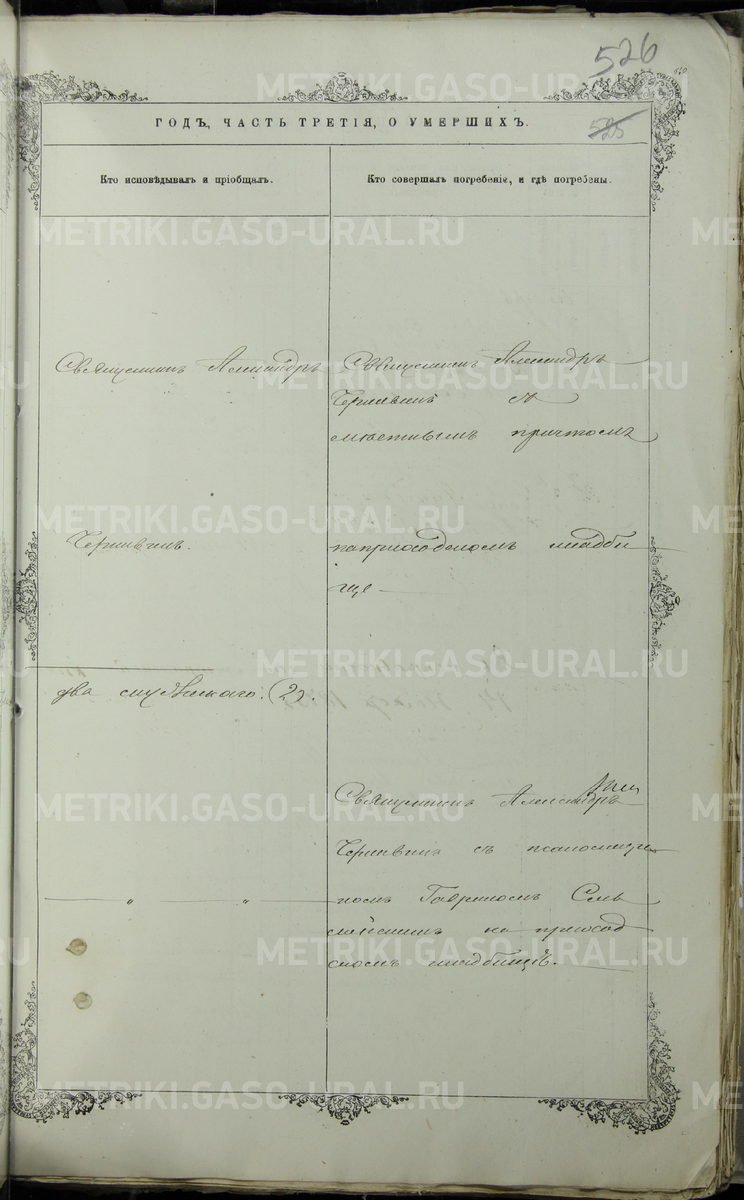 526
525
ГОДЪ, ЧАСТЬ ТРЕТІЯ, О УМЕРШИХЪ.
Кто исповѣдывалъ и пріобщалъ.
Кто совершалъ погребеніе, и гдѣ погребены.
Священникъ Александръ
два
(2).
Священникъ Александръ
съ
мѣстнымъ причтомъ
на приходскомъ кладби
ще
Священникъ Александръ
съ псаломщи
комъ Гавриломъ
на приход
скомъ кладбищѣ.
METRIKI.GASO-URAL.RU